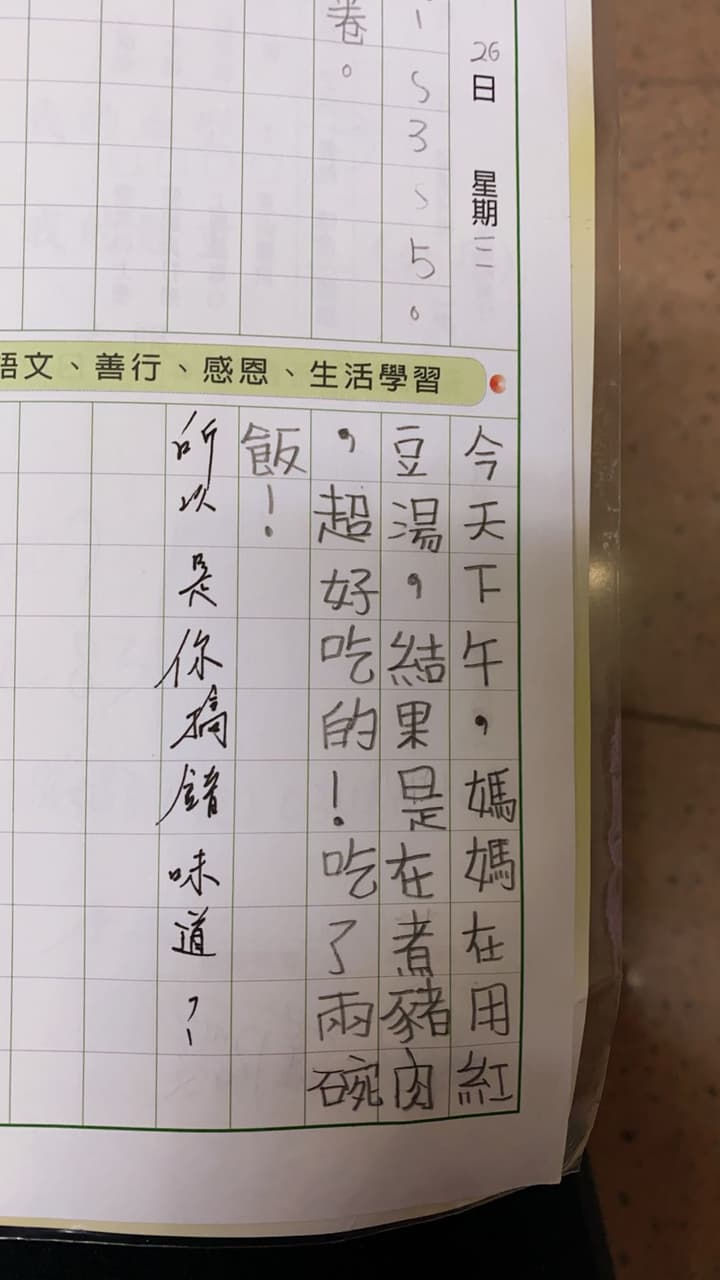 26日 星期三
1535。
卷。
語文、善行、感恩、生活學習
今天下午，媽媽在用紅
豆湯，結果是在煮豬肉
，超好吃的！吃了兩碗
飯！
所以是你搞錯味道？